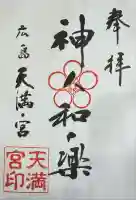 奉拝
神人和楽
広島
天満宮
天満
宮印